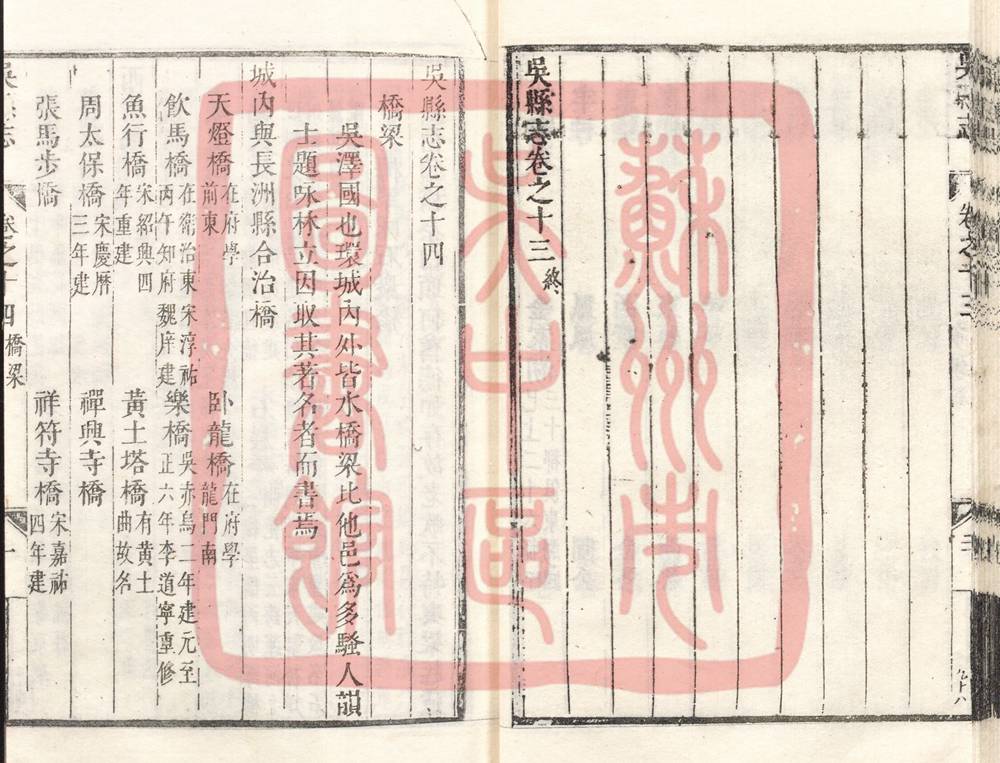 吳縣志
卷之十三
吳縣志卷之十三終
蘇州市
吳中區
圖書館
吳縣志卷之十四
橋梁
吳澤國也環城內外皆水橋梁比他邑爲多騷人韻
士題咏林立因取其著名者而書焉
城內與長洲縣合治橋
天燈橋在府學前東 卧龍橋在府學龍門南
飲馬橋在衛治東宋淳祐丙午知府魏庠建 樂橋吳赤烏二年建元至正六年李道寧重修
魚行橋宋紹興四年重建 黃土塔橋有黃土曲故名
周太保橋宋慶曆三年建 禪興寺橋
張馬步橋 祥符寺橋宋嘉祐四年建
吳縣志
卷之十四
橋梁
一